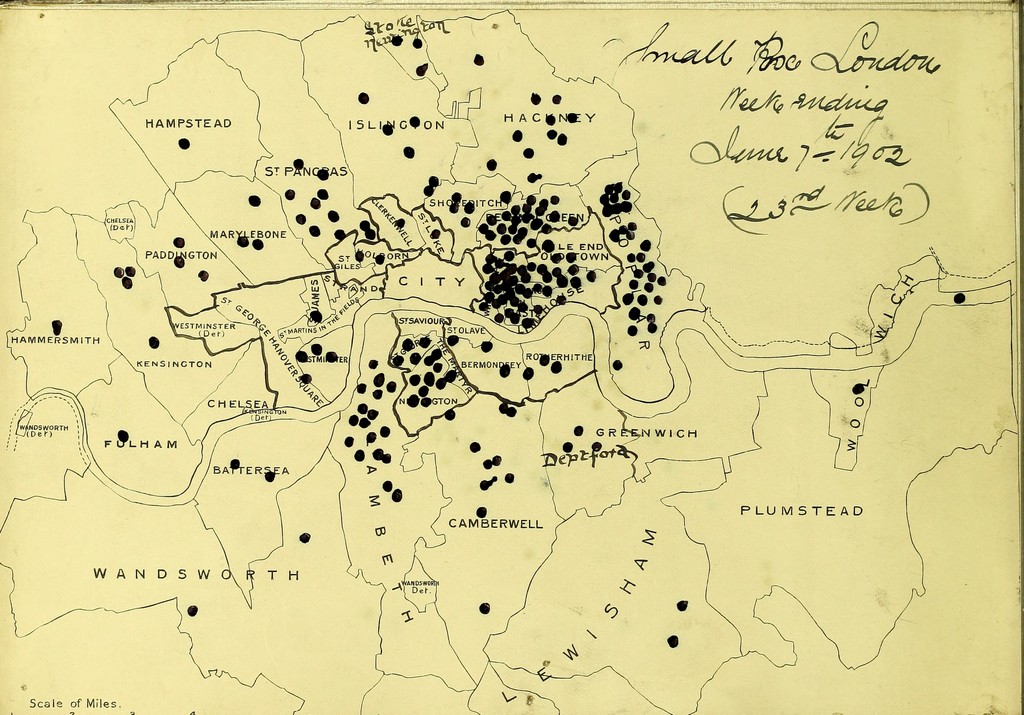 Stoke
Newington
Small Pox London
Week ending
June 7th 1902
(23rd Week)
HAMPSTEAD
ISLINGTON
HACKNEY
ST PANCRAS
SHOREDITCH
CHELSEA
(Det)
CLERKENWELL
ST LUKE
GREEN
MARYLEBONE
PADDINGTON
ST
GILES
HOLBORN
MILE END
OLD TOWN
POPLAR
STRAND
CITY
LIMEHOUSE
ST JAMES
ST MARTINS IN THE FIELDS
ST GEORGE HANOVER SQUARE
WESTMINSTER
(Det)
WESTMINSTER
ST SAVIOUR
ST OLAVE
ST GEORGE THE MARTYR
BERMONDSEY
ROTHERHITHE
HAMMERSMITH
KENSINGTON
NEWINGTON
CHELSEA
KENSINGTON
(Det)
WANDSWORTH
(Det)
FULHAM
BATTERSEA
GREENWICH
Deptford
WOOLWICH
LAMBETH
CAMBERWELL
PLUMSTEAD
WANDSWORTH
WANDSWORTH
Det.
LEWISHAM
Scale of Miles.
2 3 4